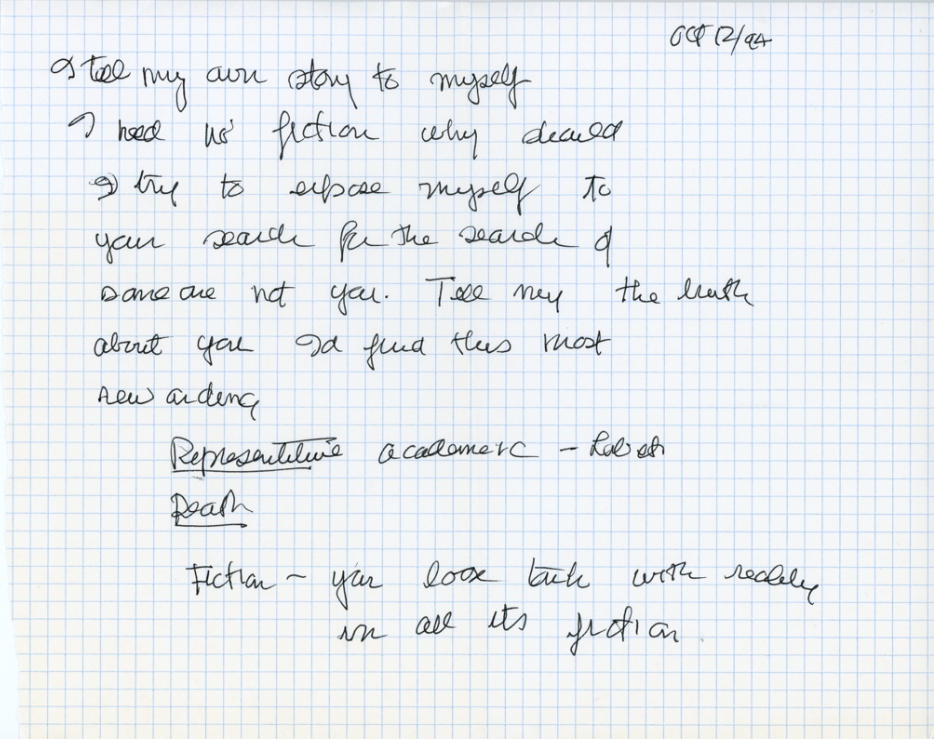 Oct 12/94
I tell my own story to myself
I need no fiction why should
I try to expose myself to
your search for the search of
someone not you. Tell my the truth
about you I'd find this most
rewarding
Representitive academic -
Death
Fiction ~ you loose touch with reality
in all its fiction.